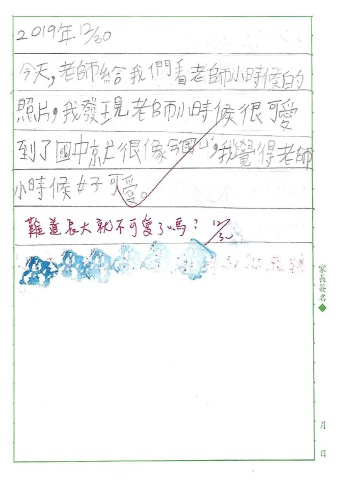 2019年12/30
今天,老師給我們看老師小時候的
照片,我發現老師小時候很可愛
到了國中京尤很像 ,我覺得老師
小時候好可愛。
難道長大就不可愛了嗎? 12/30
家長簽名◆
月
日